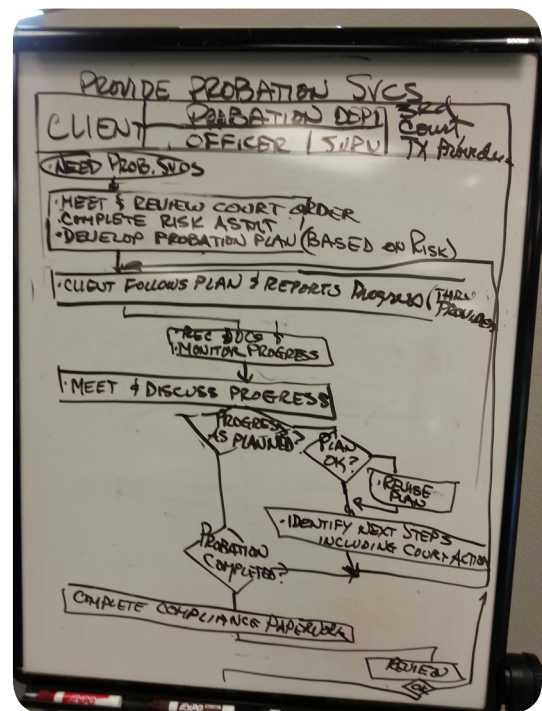 PROVIDE PROBATION SVCS
CLIENT
PROBATION DEPT
OFFICER | SUPV
3rd
Court
TX Provider
NEED PROB. SVDS
• MEET & REVIEW COURT ORDER
• COMPLETE RISK ASMT
• DEVELOP PROBATION PLAN (BASED ON RISK)
• CLIENT FOLLOWS PLAN & REPORTS PROGRESS (THRU
PROVIDER
• REC DOCS &
• MONITOR PROGRESS
• MEET & DISCUSS PROGRESS
PROGRESS
AS PLANNED?
PLAN
OK?
• REVISE
PLAN
• IDENTIFY NEXT STEPS
INCLUDING COURT ACTION
PROBATION
COMPLETED?
COMPLETE COMPLIANCE PAPERWORK
REVIEW
OK
EXPO
EXPO